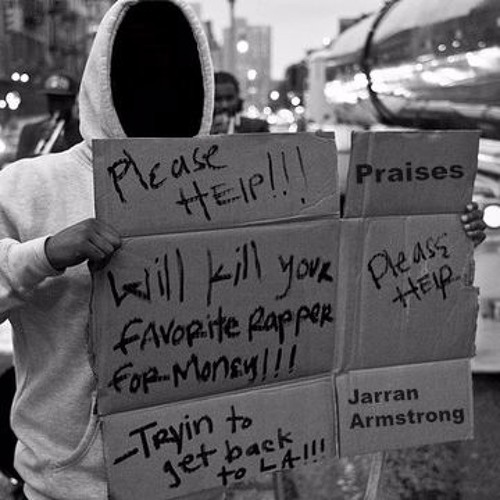 Please
HElP!!!
Will kill your
FAVORite Rapper
FOR-MoNey!!!
-TRyin to
get back
to LA!!!
Praises
Please
HElP
Jarran
Armstrong